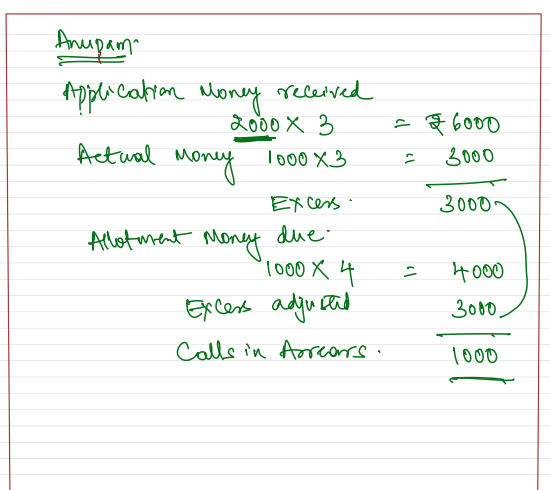 Anupam
Application Money received
2000 × 3 = ₹6000
Actual Money 1000×3 = 3000
Excess. 3000
Allotment Money due.
1000 × 4 = 4000
Excess adjusted 3000
Calls in Arrears. 1000